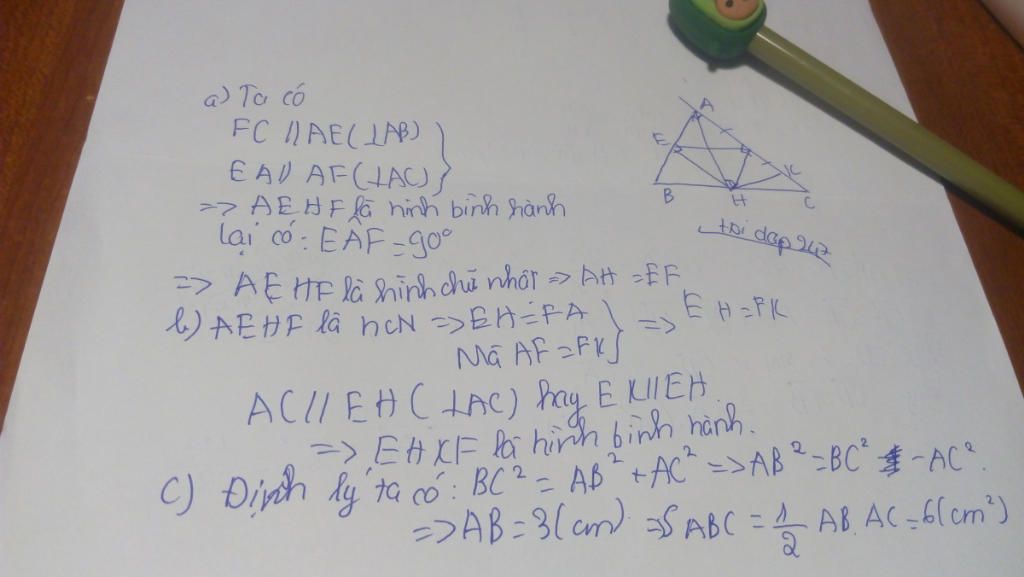 a) Ta có
FC // AE (⊥AB) }
EA // AF (⊥AC) }
=> AEHF là hình bình hành
lại có: EÂF = 90°
=> AEHF là hình chữ nhật => AH = EF
b) AEHF là hcN => EH = FA } => EH = FK
Mà AF = FK }
AC // EH (⊥AC) hay EK // EH.
=> EHKF là hình bình hành.
C) Định lý ta có: BC² = AB² + AC² => AB² = BC² - AC².
=> AB = 3 (cm) => S ABC = 1/2 AB. AC = 6 (cm²)
A
E
K
B
H
C
toi dap 247